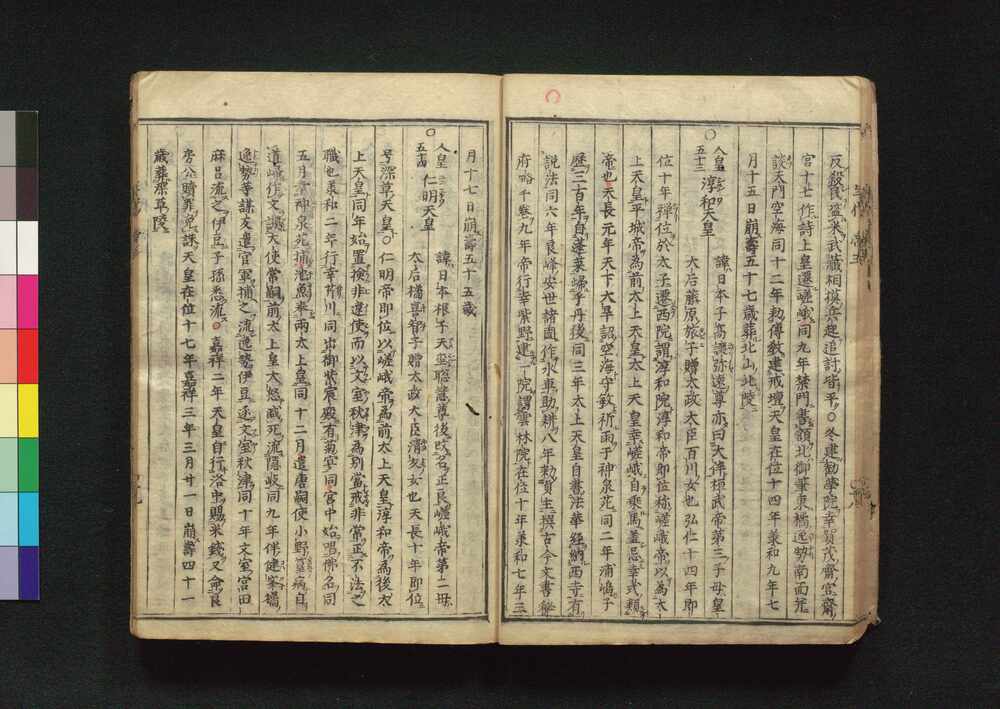 反殺後盗米武藏相摸兵起追討皆平○冬建勧学院幸賀茂齋宮齋
宮十七作詩上皇遷嵯峨同九年禁門書額北御筆東橘逸勢南面
談天門空海同十二年勅傳教建戒壇天皇在位十四年美和九年七
月十五日崩壽五十七歳葬北山北陵
○人皇五十三 淳和天皇 諱日本子高譲弥遠尊亦曰大伴桓武帝第三子母皇
太后藤原旅子贈太政大臣百川女也弘仁十四年即
位十年禅位於太子遷西院謂淳和院淳和帝即位称嵯峨帝以為太
上天皇平城帝為前太上天皇太上天皇幸嵯峨自乗馬蓋忌幸式類
帝也天長元年天下大旱詔空海守敏祈雨于神泉苑同二年浦嶋子
歴三百年自蓬萊帰于丹後同三年太上天皇自書法華経納西寺有
説法同六年良峰安世諸国作水車助耕八年勅貞主撰古今文書秘
府略千巻九年帝行幸紫野建一院謂雲林院在位十年美和七年三
月十七日崩壽五十五歳
○人皇五十四 仁明天皇 諱日本根子天璽聡慧尊後改名正良嵯峨帝第二母
太后橘喜智子贈太政大臣清友女也天長十年即位
号深草天皇○仁明帝即位以嵯峨帝為前太上天皇淳和帝為後太
上天皇同年始置検非違使而以文室秋津為別當戒非常正不法之
職也美和二年行幸芹川同出御紫宸殿有菊宴同宮中始唱佛名同
五月神泉苑捕池魚奉両太上皇同十二月遣唐嗣使小野篁病自
遣嶂作文譏大使常嗣前太上皇大怒減死流隠岐同九年伴健岑橘
逸勢等謀反遣官軍捕之流逸勢伊豆逐文室秋津同十年文室宮田
麻呂流之伊豆子孫悉流○嘉祥二年天皇自行洛中賜米銭又命良
房公贖罪免課天皇在位十七年嘉祥三年三月廿一日崩壽四十一
歳葬深草陵